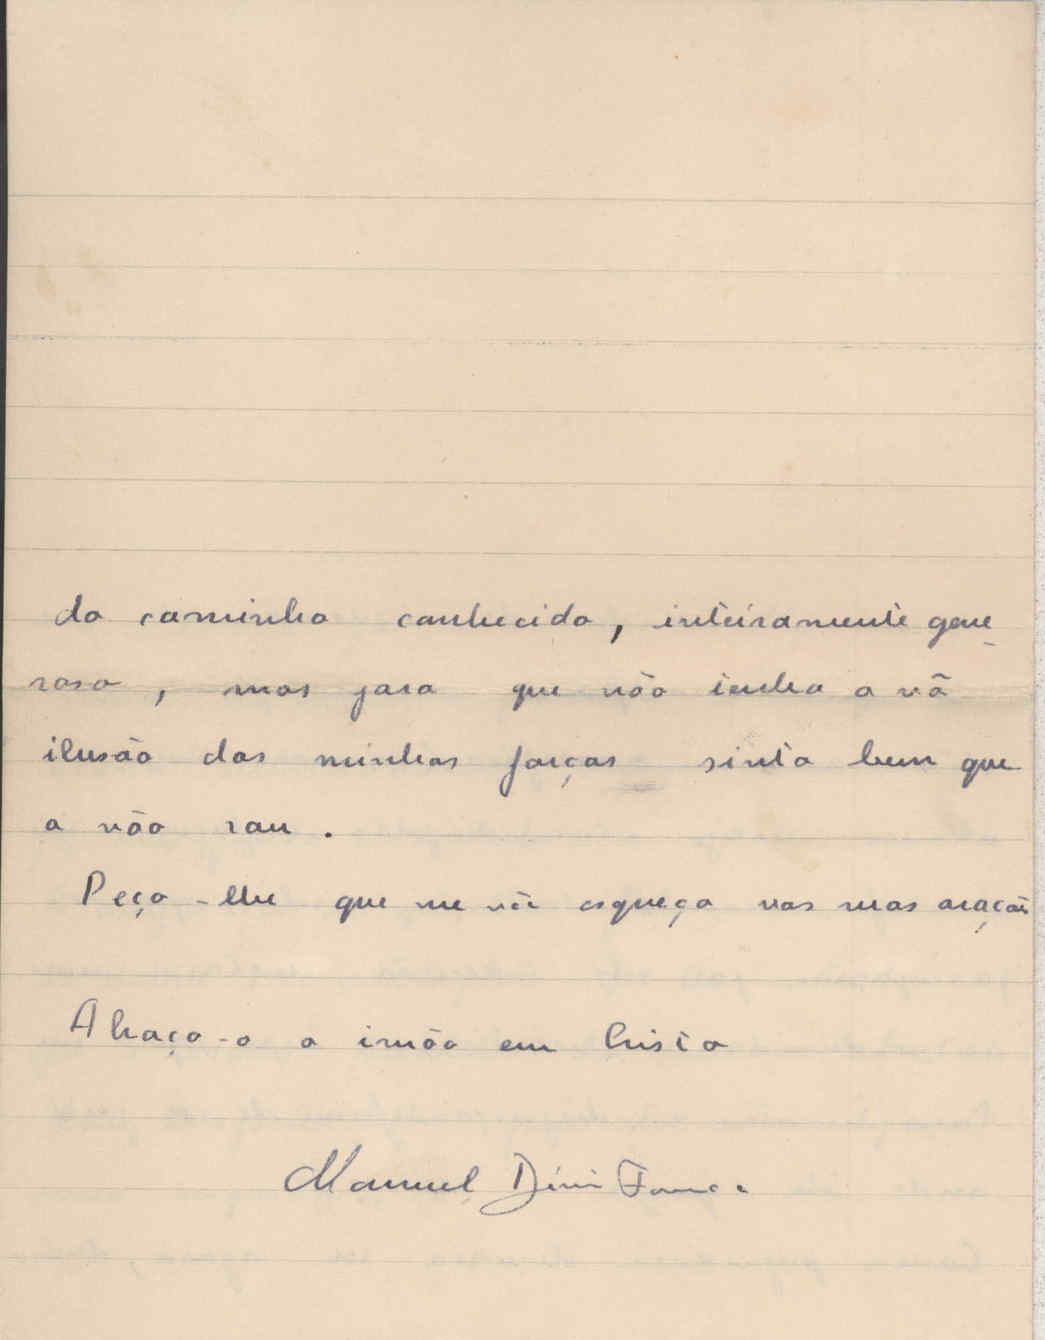 do caminho conhecido, inteiramente gene
roso, mas para que não tenha a vã
ilusão das minhas forças sinto bem que
o não sou.
Peço-lhe que me não esqueça nas suas orações
Abraço-o o irmão em Cristo
Manuel Dinis Fonseca